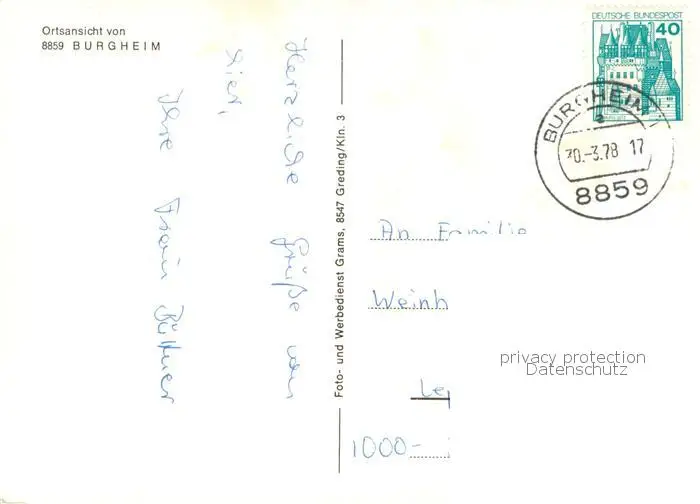 Ortsansicht von
8859 BURGHEIM
Herzliche Grüße von
hier,
Ihre Frau Büttner
Foto- und Werbedienst Grams, 8547 Greding/Kln. 3
DEUTSCHE BUNDESPOST
40
BURGHEIM
a
-3.78 17
8859
An Familie
Weinh
1000-
privacy protection
Datenschutz